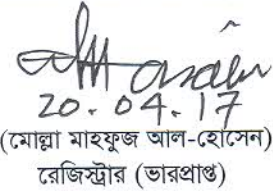 20.04.17
(মোল্লা মাহফুজ আল-হোসেন)
রেজিস্ট্রার (ভারপ্রাপ্ত)